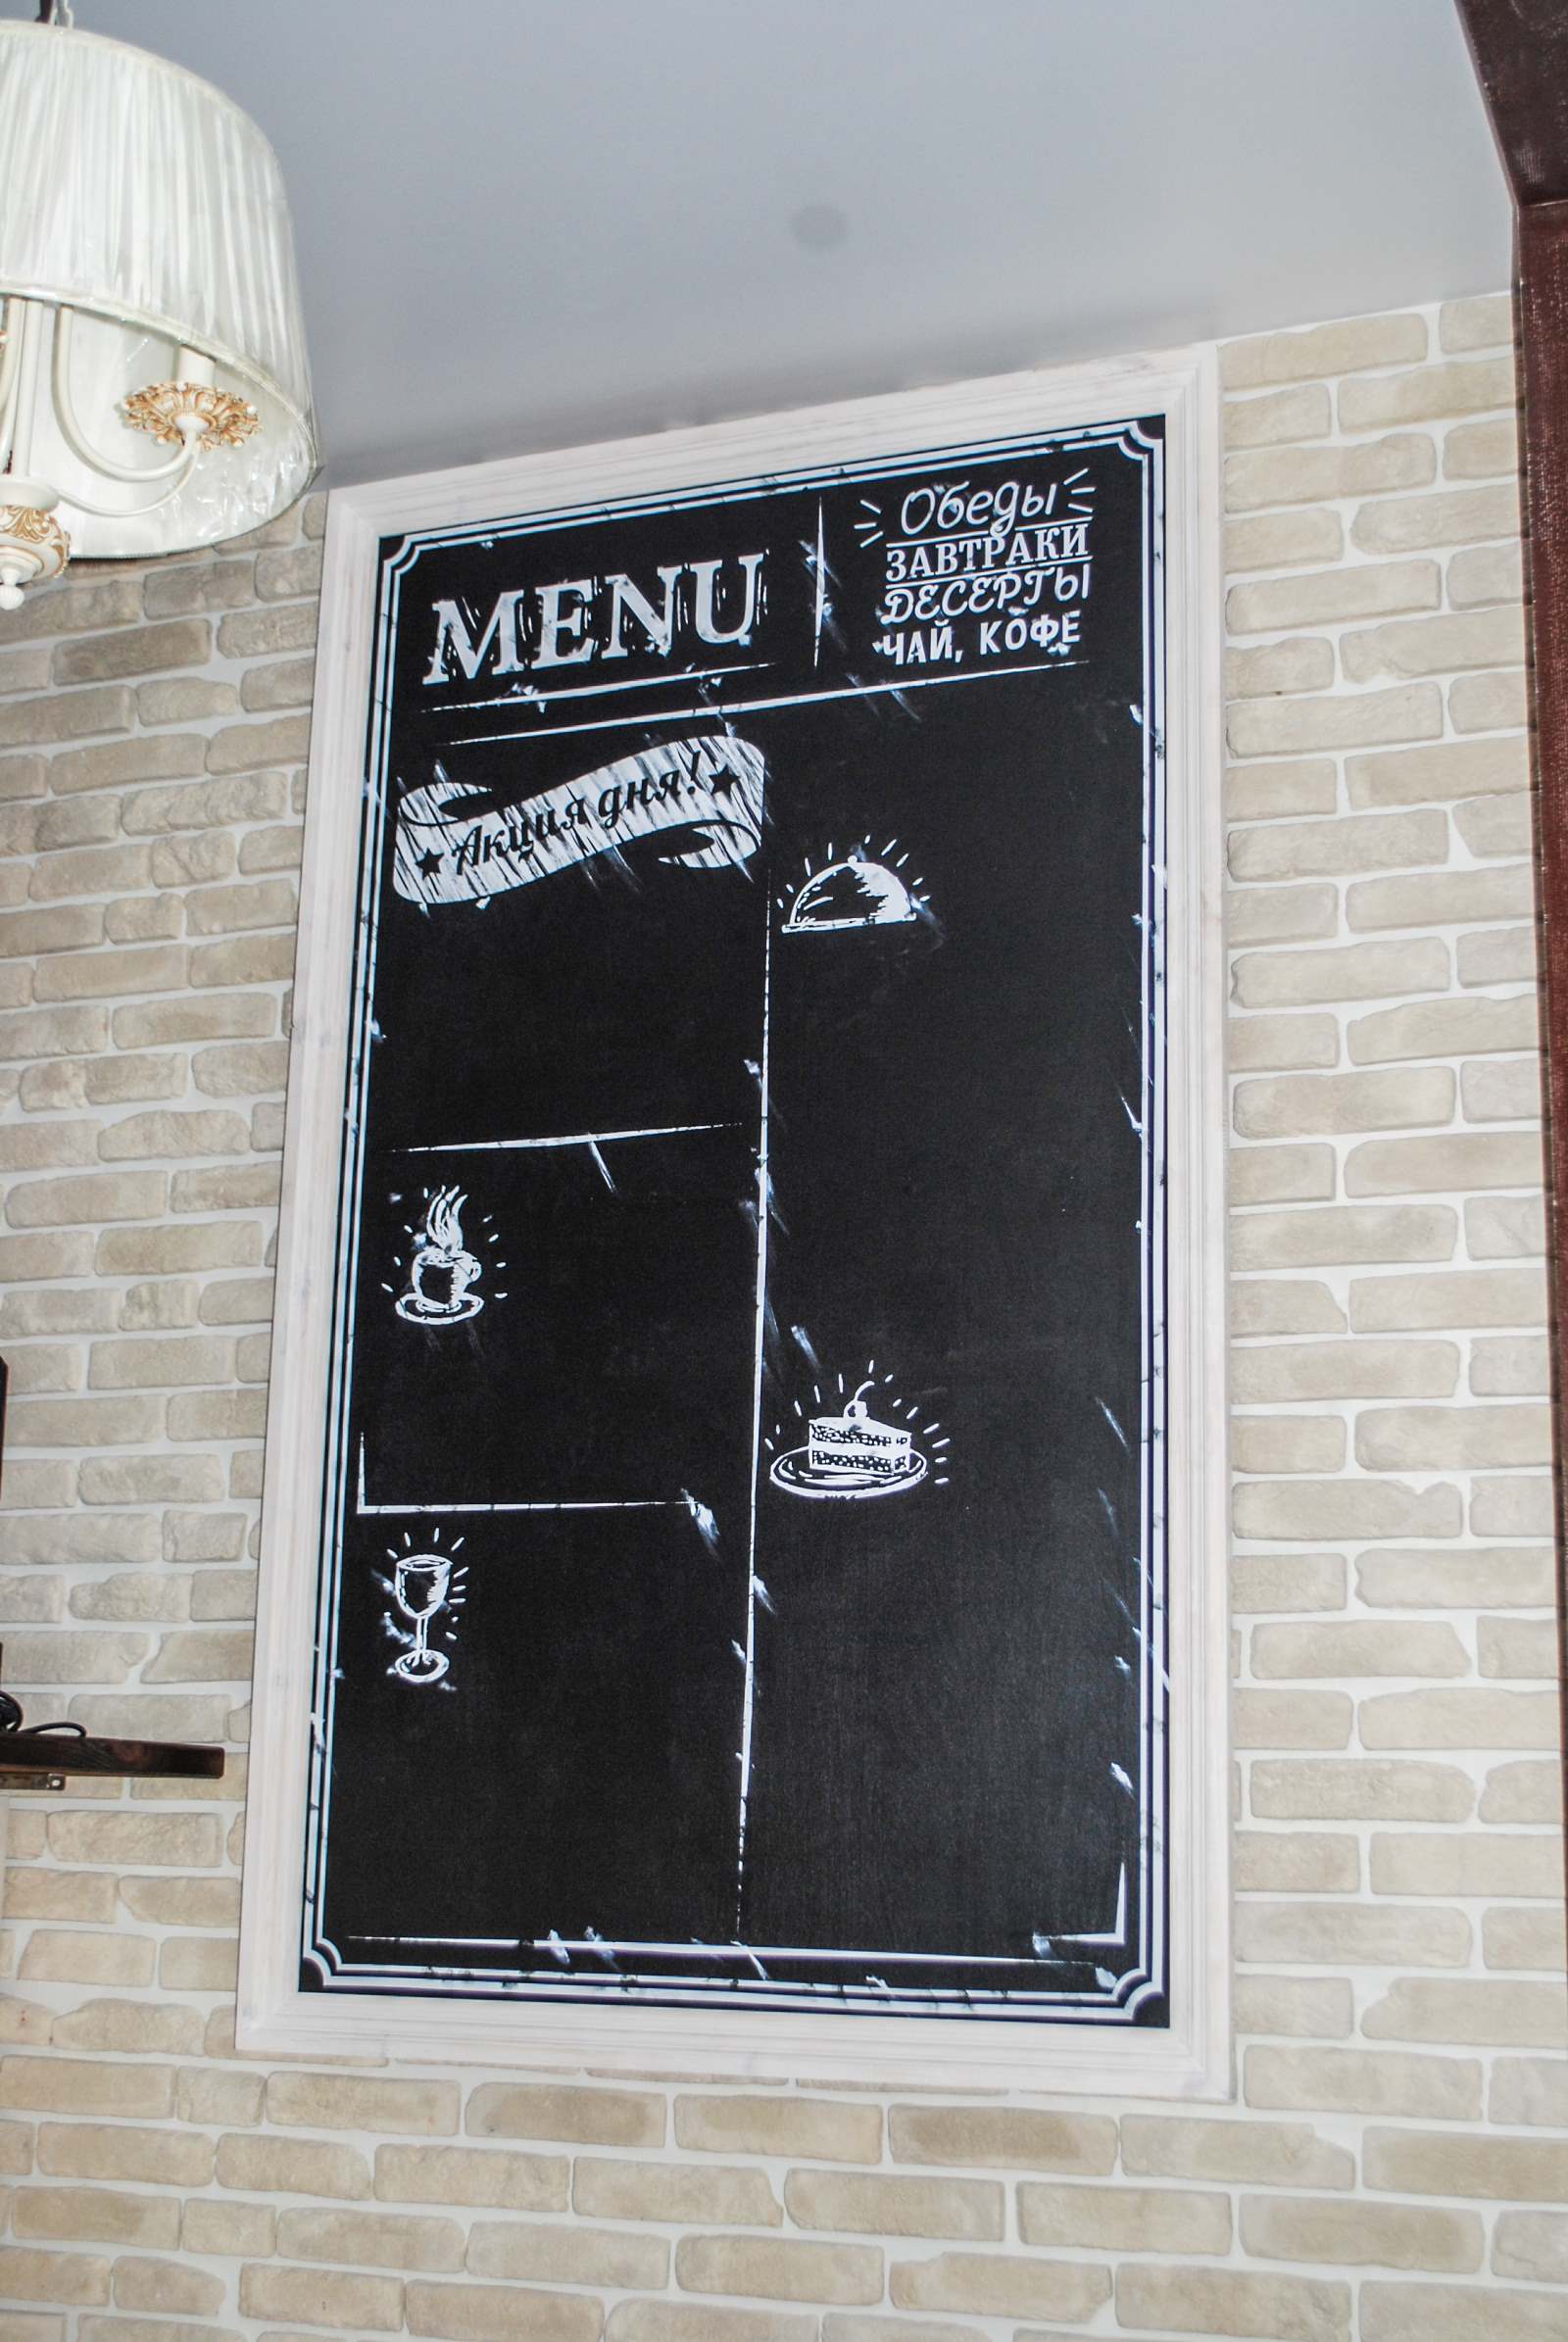 MENU
Обеды
ЗАВТРАКИ
ДЕСЕРТЫ
ЧАЙ, КОФЕ
Акция дня!